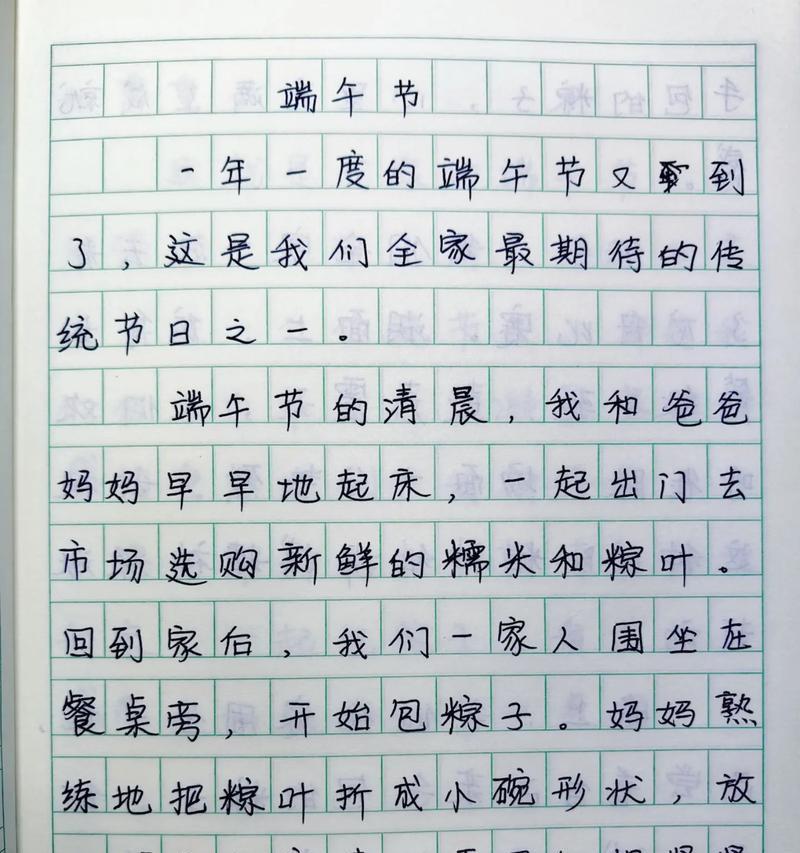 端午节
一年一度的端午节又到
了，这是我们全家最期待的传
统节日之一。
端午节的清晨，我和爸爸
妈妈早早地起床，一起出门去
市场选购新鲜的糯米和粽叶。
回到家后，我们一家人围坐在
餐桌旁，开始包粽子。妈妈熟
练地把粽叶折成小碗形状，放